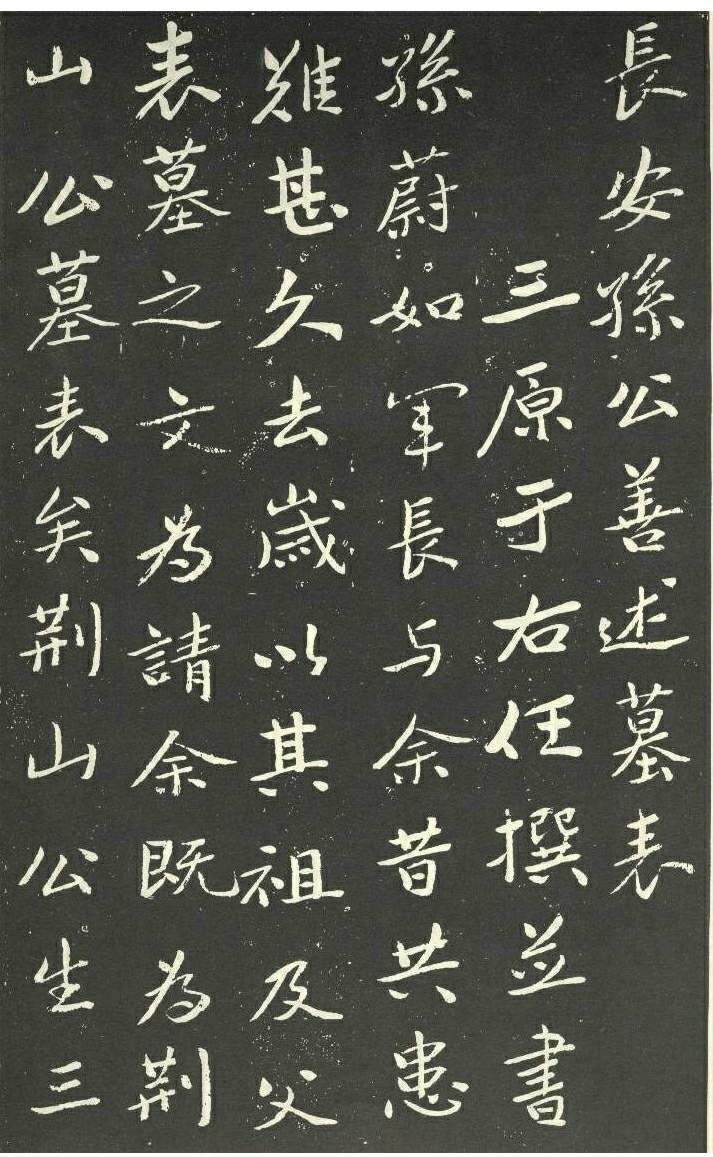 長安孫公善述墓表
三原于右任撰並書
孫蔚如軍長与余昔共患
難甚久去歲以其祖及父
表墓之文為請余既為荆
山公墓表矣荆山公生三